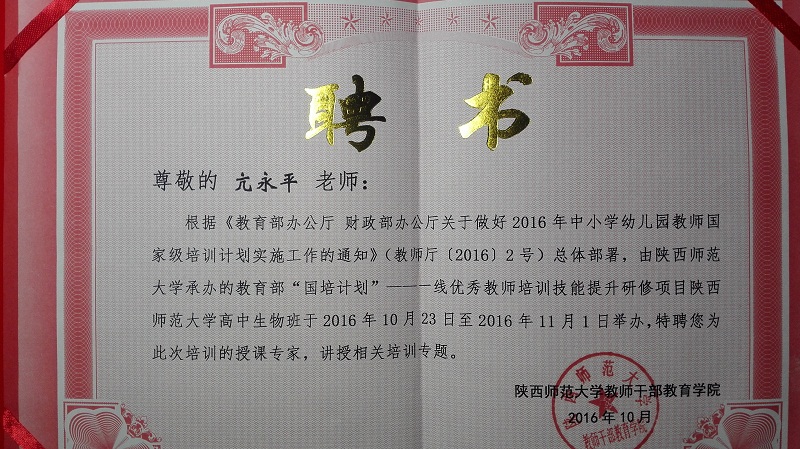 聘 书
尊敬的 亢永平 老师：
根据《教育部办公厅 财政部办公厅关于做好2016年中小学幼儿园教师国
家级培训计划实施工作的通知》（教师厅〔2016〕2号）总体部署，由陕西师范
大学承办的教育部“国培计划”——一线优秀教师培训技能提升研修项目陕西
师范大学高中生物班于2016年10月23日至2016年11月1日举办，特聘您为
此次培训的授课专家，讲授相关培训专题。
陕西师范大学教师干部教育学院
2016年10月
陕西师范大学
教师干部教育学院